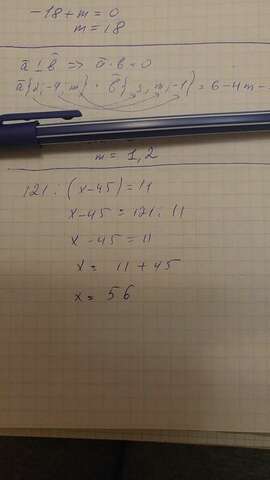 -18 + m = 0
m = 18
a ⊥ b => a · b = 0
a{2; -4; m} · b{3; m; -1} = 6 - 4m -
m = 1,2
121 : (x-45) = 11
x-45 = 121 : 11
x - 45 = 11
x = 11 + 45
x = 56